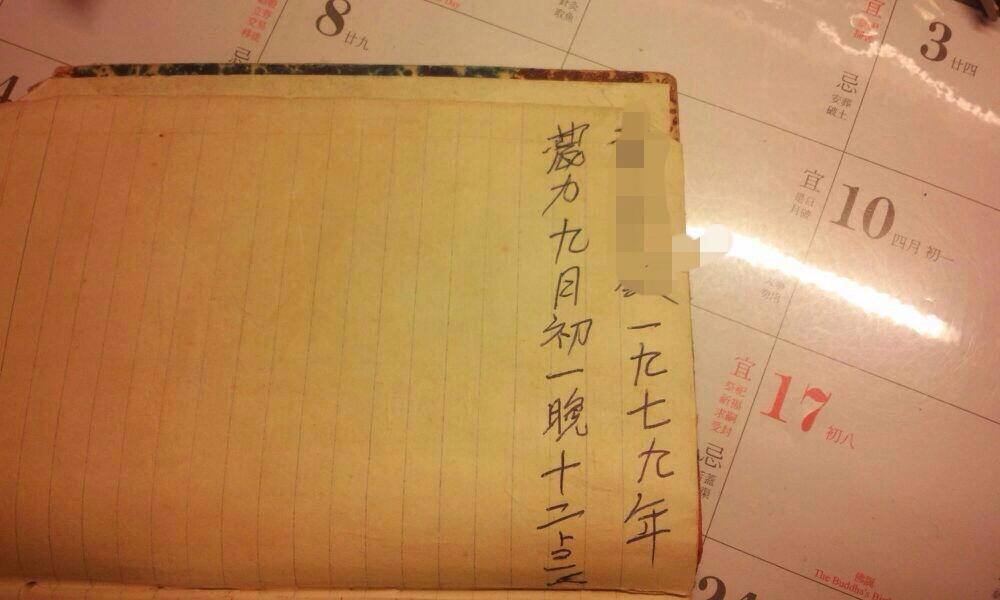 一九七九年
農力九月初一晚十二点
8 廿九
忌
3 廿四
忌
安葬
破土
宜
宜
是日
月破
10 四月 初一
宜
祭祀
祈福
求嗣
受封
17 初八
忌
佛誕
The Buddha's Bi
24